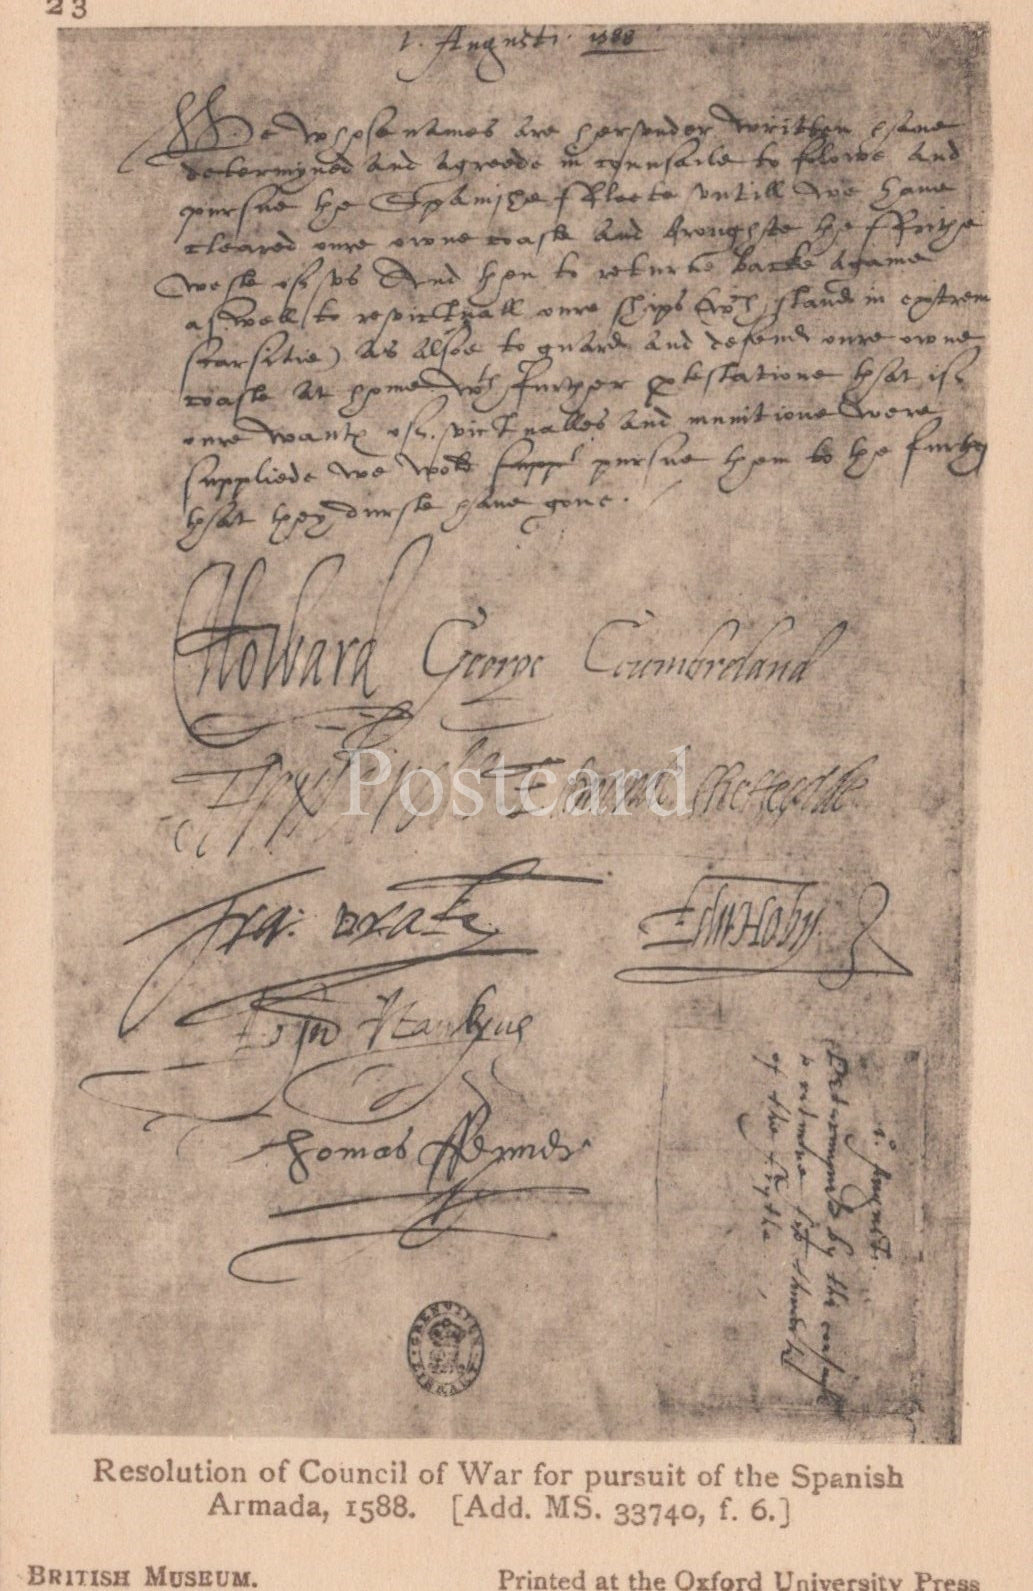 23
1. Augusti. 1588
We whose names are hereunder written have
determyned and agreede in counsaile to folowe and
pursue the Spanishe ffleete untill we have
cleared oure owne coaste and broughte the ffrithe
weste of us And then to returne backe agame
aswell to revictuall oure ships (wch stand in extrem
scarsitie) as alsoe to guard and defend oure owne
coaste at home wth further protestatione that if
oure wants of victualles and munitione were
suppliede we wold suppl pursue them to the furthest
that they durste have gone.
C Howard George Coumbreland
T Howard Edmund Sheffeylde
Fra: Drake Edw Hoby
John Hawkyns
Thomas ffenner
1° August.
Determyned by the counsaile
to returne
of the frythe
Postcard
Resolution of Council of War for pursuit of the Spanish
Armada, 1588. [Add. MS. 33740, f. 6.]
BRITISH MUSEUM. Printed at the Oxford University Press